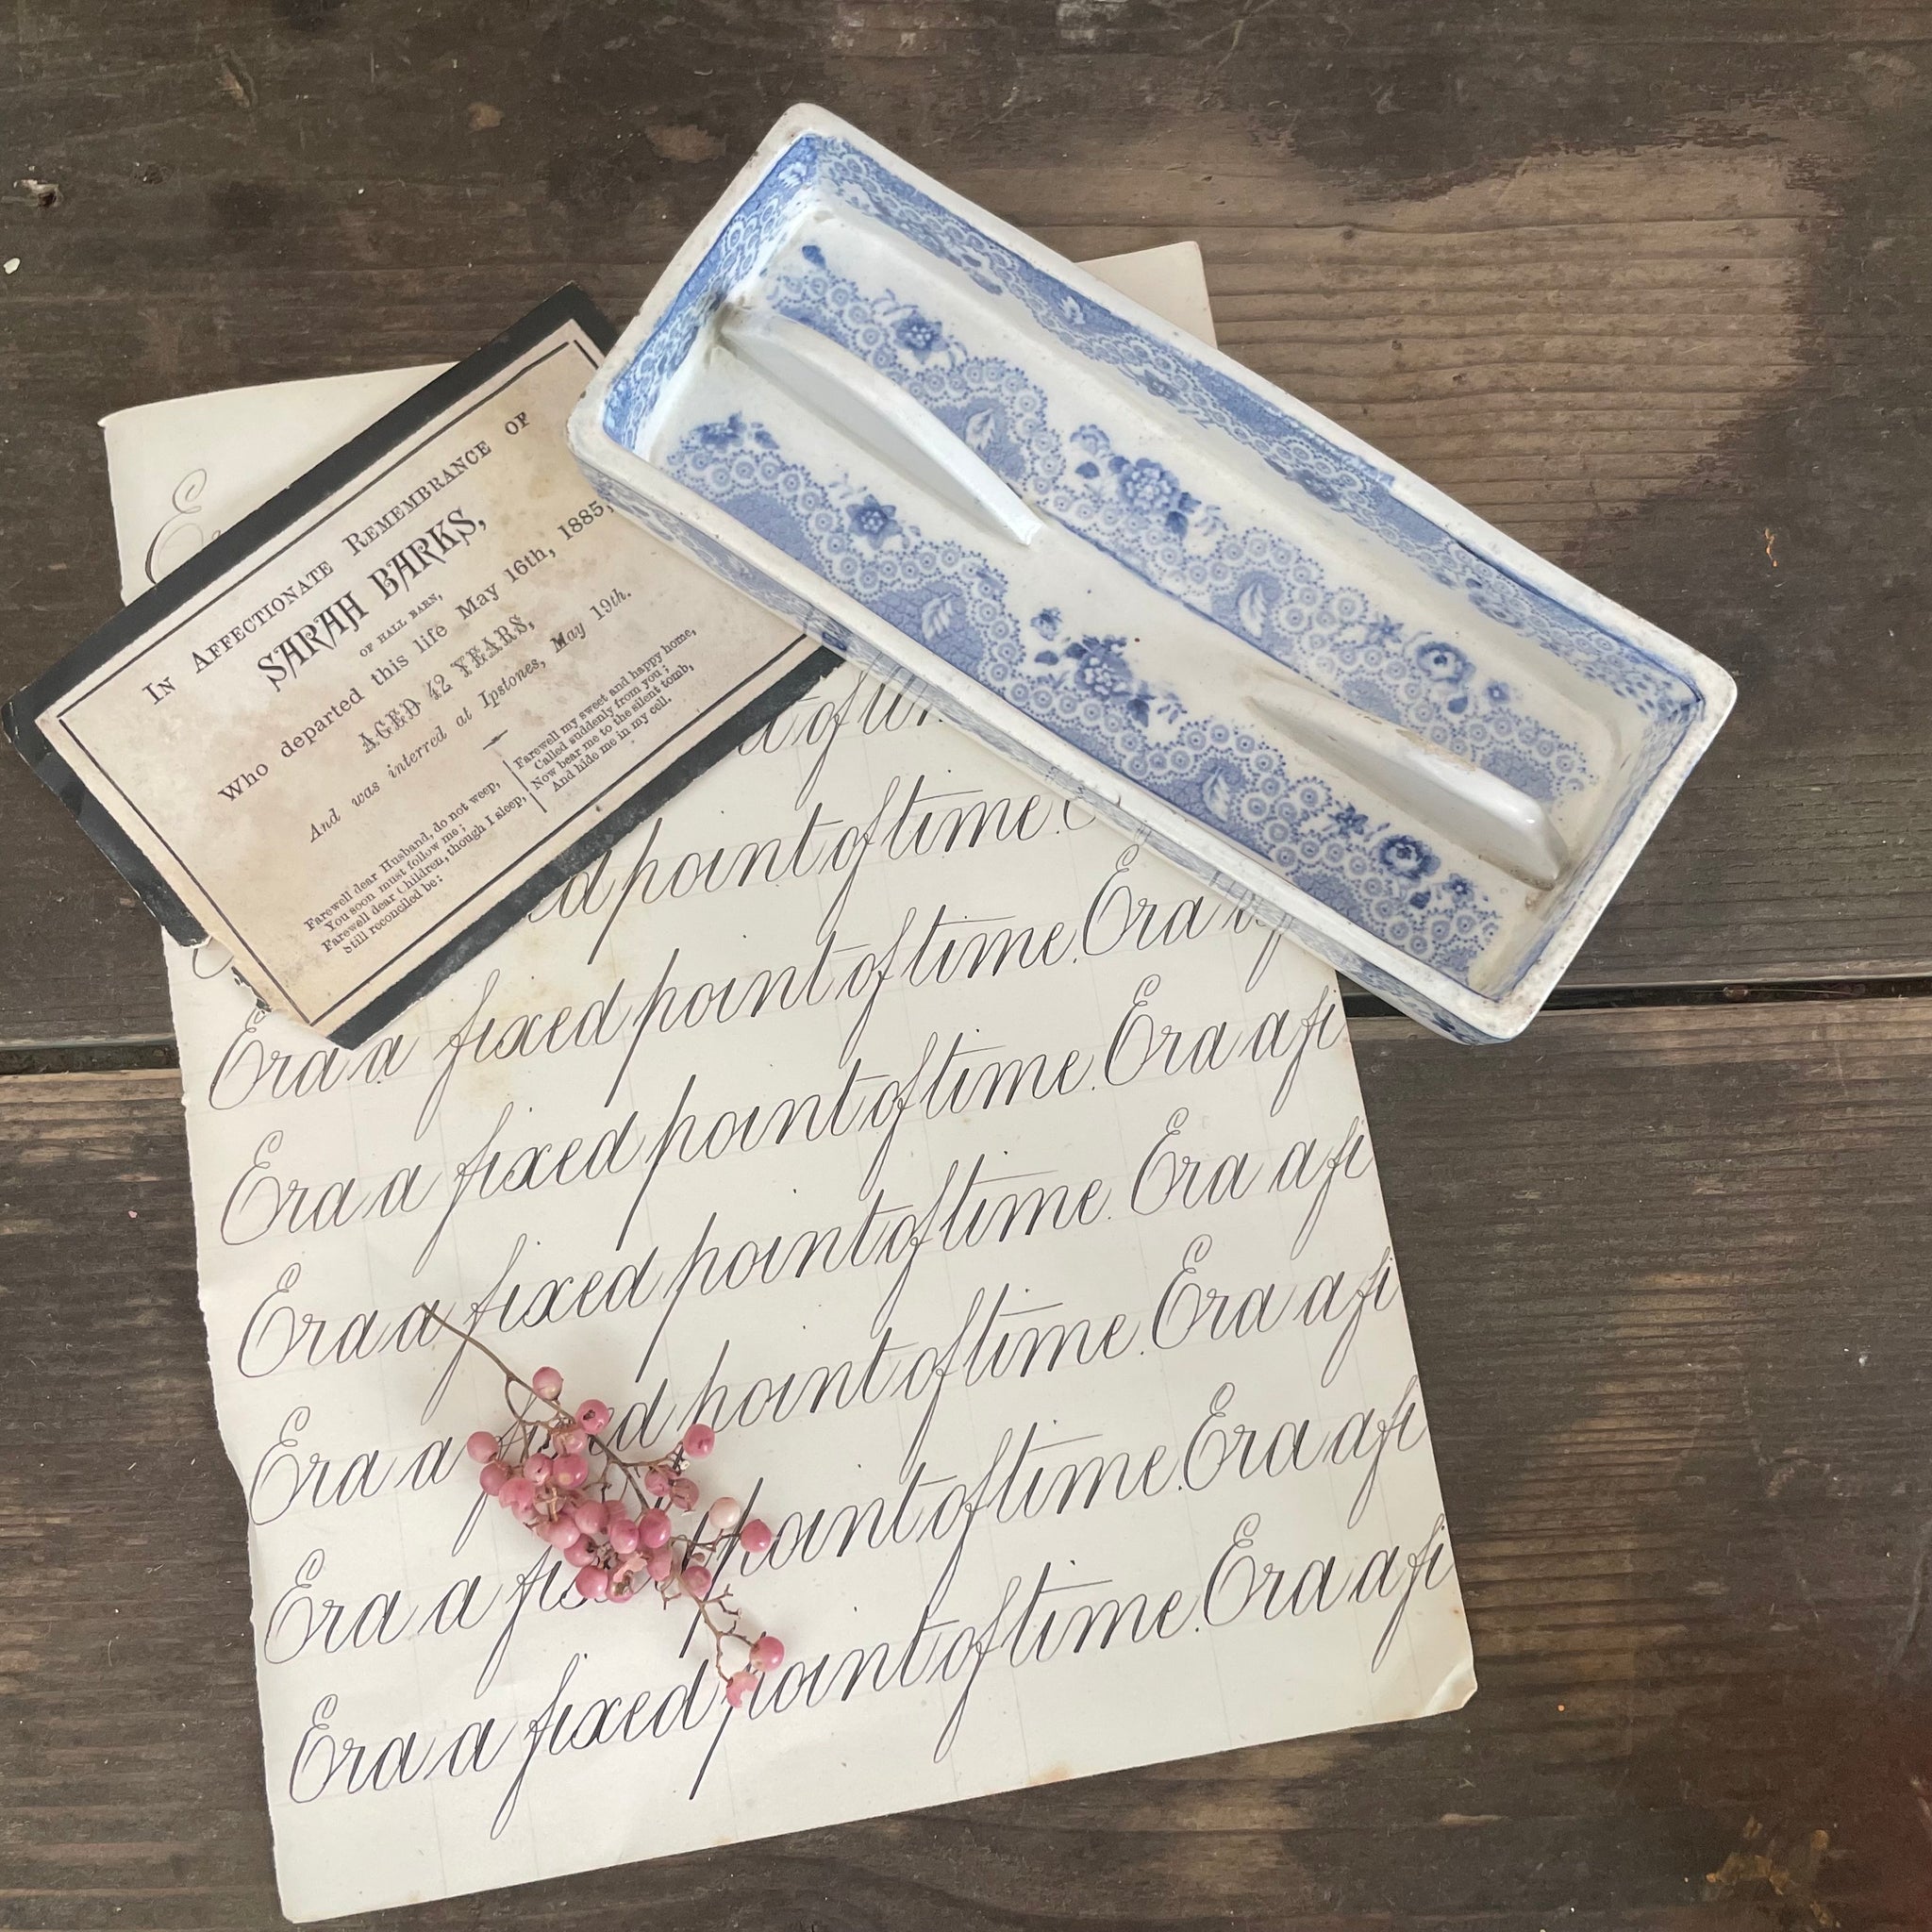 In Affectionate Remembrance of
SARAH BARKS,
OF HALL BARN,
Who departed this life May 16th, 1885,
AGED 42 YEARS,
And was interred at Ipstones, May 19th.
Farewell dear Husband, do not weep,
You soon must follow me;
Farewell dear Children, though I sleep,
Still reconciled be:
Farewell my sweet and happy home,
Called suddenly from you;
Now bear me to the silent tomb,
And hide me in my cell.
point of time.
Era a fixed point of time. Era
Era a fixed point of time. Era a fi
Era a fixed point of time. Era a fi
Era a point of time. Era a fi
Era a point of time. Era a fi
Era a fixed point of time. Era a fi